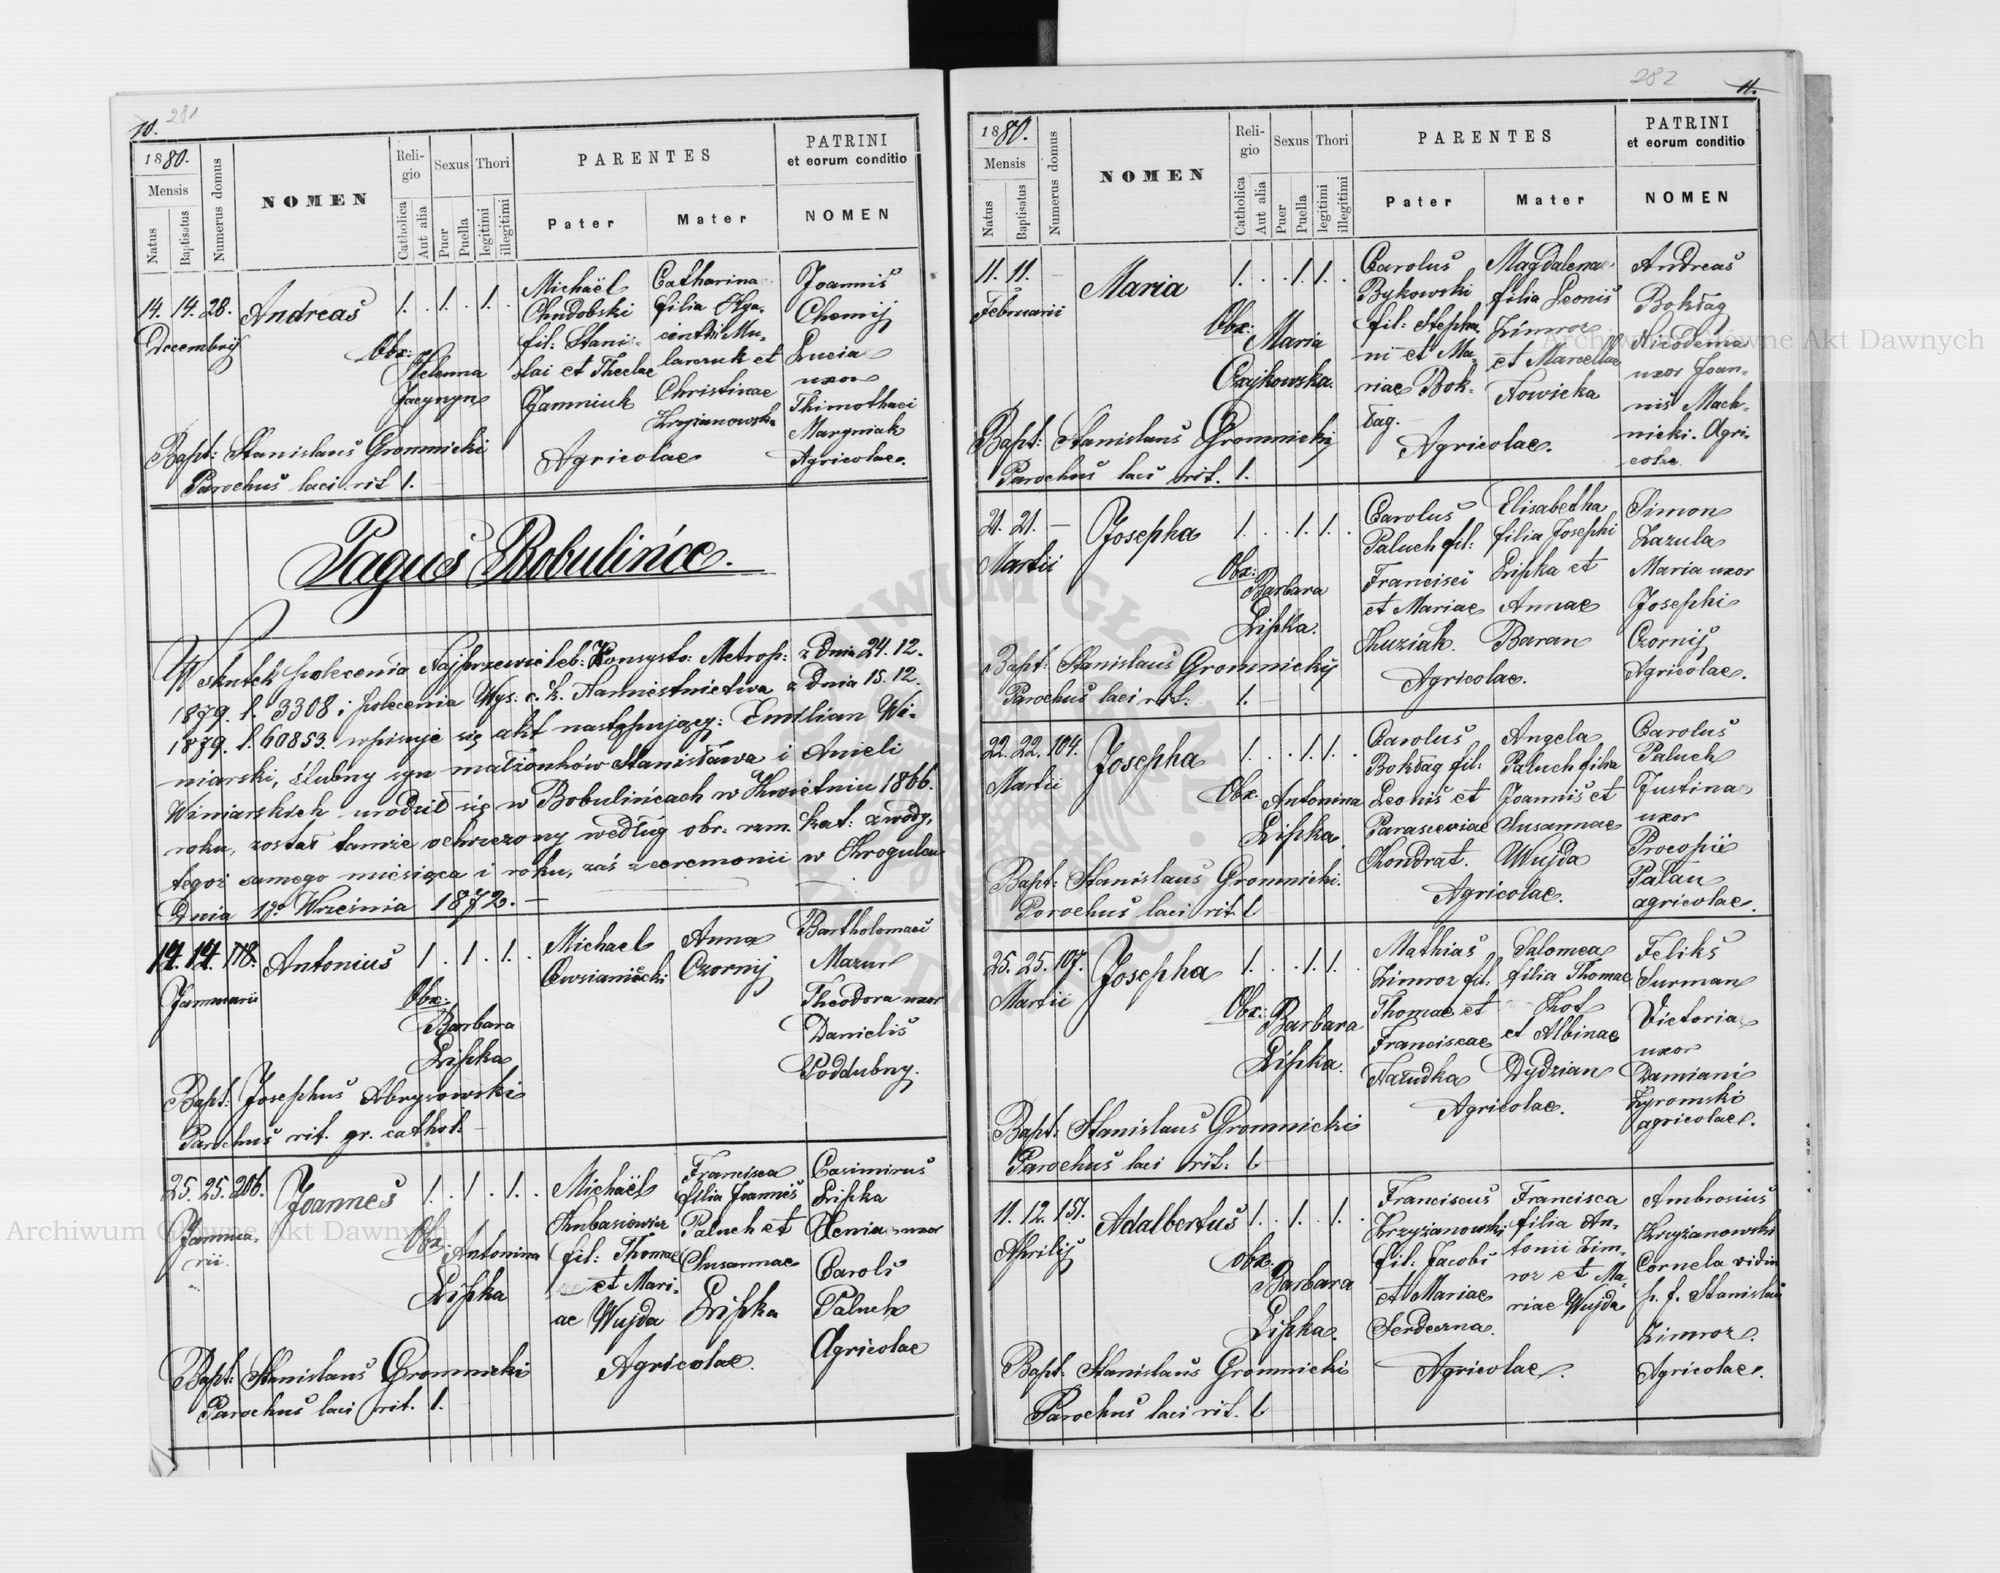 10. 281
1880.
Mensis
Natus
Baptisatus
Numerus domus
NOMEN
Reli-
gio
Catholica
Aut alia
Sexus
Puer
Puella
Thori
legitimi
illegitimi
PARENTES
Pater
Mater
PATRINI
et eorum conditio
NOMEN
14. 14. 28. Andreas 1. . 1. 1. .
Decembris
Obx:
Helenna
Jacynyn
Michaël
Chudobski
fil: Stanis-
lai et Theclae
Zamniuk
Catharina
filia Hya-
cinthi Mu-
larczuk et
Christinae
Krzyżanowska
Agricolae
Joannis
Chomij
Lucia
uxor
Thimothaei
Maryniak
Agricolae.
Bapt: Stanislaus Gromnicki
Parochus laci rit. l.
Pagus Bobulińce.
Wskutek polecenia Najprzewieleb: Konsysto: Metrop: z Dnia 24. 12.
1879. l. 3308 i polecenia Wys. c. k. Namiestnictwa z Dnia 15. 12.
1879. l. 60853. wpisuje się akt następujący: Emilian Wi-
niarski, ślubny syn małżonków Stanisława i Anieli
Winiarskich urodził się w Bobulińcach w Kwietniu 1866.
roku, został tamże ochrzczony według obr: rzm. kat: z wody,
tegoż samego miesiąca i roku, zaś z ceremonii w Chrogulcu
Dnia 17º Września 1872. —
14. 14. 178. Antonius 1. . 1. 1. .
Januarii
Obx:
Barbara
Lipka
Michael
Owsianiecki
Anna
Czornij
Bartholomaei
Mazur
Theodora uxor
Danielis
Poddubny.
Bapt: Josephus Abrysowski
Parochus rit. gr. cathol:
25. 25. 206. Joannes 1. . 1. 1. .
Janua-
rii
Obx: Antonina
Lipka
Michaël
fil: Thomae
et Mari-
ae Wujda
Francisca
filia Joannis
Paluch et
Susannae
Lipka
Agricolae.
Casimirus
Lipka
Xenia uxor
Caroli
Paluch
Agricolae
Bapt: Stanislaus Gromnicki
Parochus laci rit. l.
282 11.
1880.
Mensis
Natus
Baptisatus
Numerus domus
NOMEN
Reli-
gio
Catholica
Aut alia
Sexus
Puer
Puella
Thori
legitimi
illegitimi
PARENTES
Pater
Mater
PATRINI
et eorum conditio
NOMEN
11. 11. — Maria 1. . . 1. 1. .
Februarii
Obx:
Maria
Czajkowska.
Carolus
Bykowski
fil: Stepha-
ni et Ma-
riae Bok-
łag.
Magdalena
filia Leonis
Zimroz
et Marcellae
Nowicka
Agricolae.
Andreas
Bokłag
Nicodema
uxor Joan-
nis Mach-
nicki. Agri-
colae.
Bapt: Stanislaus Gromnicki
Parochus laci rit. l.
21. 21. — Josepha 1. . . 1. 1. .
Martii
Obx:
Barbara
Lipka.
Carolus
Paluch fil:
Francisci
et Mariae
Kuziak.
Elisabetha
filia Josephi
Lipka et
Annae
Baran
Agricolae.
Simon
Zazula
Maria uxor
Josephi
Czornij
Agricolae.
Bapt: Stanislaus Gromnickij
Parochus laci rit: l.
22. 22. 104. Josepha 1. . . 1. 1. .
Martii
Obx. Antonina
Lipka.
Carolus
Bokłag fil:
Leonis et
Parasceviae
Kondrat.
Angela
Paluch filia
Joannis et
Susannae
Wujda
Agricolae.
Carolus
Paluch
Justina
uxor
Procopii
Pałau
agricolae.
Bapt: Stanislaus Gromnicki.
Parochus laci rit. l
25. 25. 107. Josepha 1. . . 1. 1.
Martii
Obx: Barbara
Lipka.
Mathias
Zimroz fil:
Thomae et
Franciscae
Naludka
Salomea
filia Thomae
Kot
et Albinae
Dydzian
Agricolae.
Feliks
Surman
Victoria
uxor
Damiani
Żyromski
agricolae.
Bapt: Stanislaus Gromnicki
Parochus laci rit: l.
11. 12. 151. Adalbertus 1. . 1. . 1. .
Aprilis
Obx:
Barbara
Lipka.
Franciscus
Krzyżanowski
fil: Jacobi
et Mariae
Serdeczna.
Francisca
filia An-
tonii Zim-
roz et Ma-
riae Wujda
Agricolae.
Ambrosius
Krzyżanowski
Cornela vidua
p. f. Stanislai
Zimroz.
Agricolae.
Bapt: Stanislaus Gromnicki
Parochus laci rit. l.
Archiwum Główne Akt Dawnych
Archiwum Główne Akt Dawnych